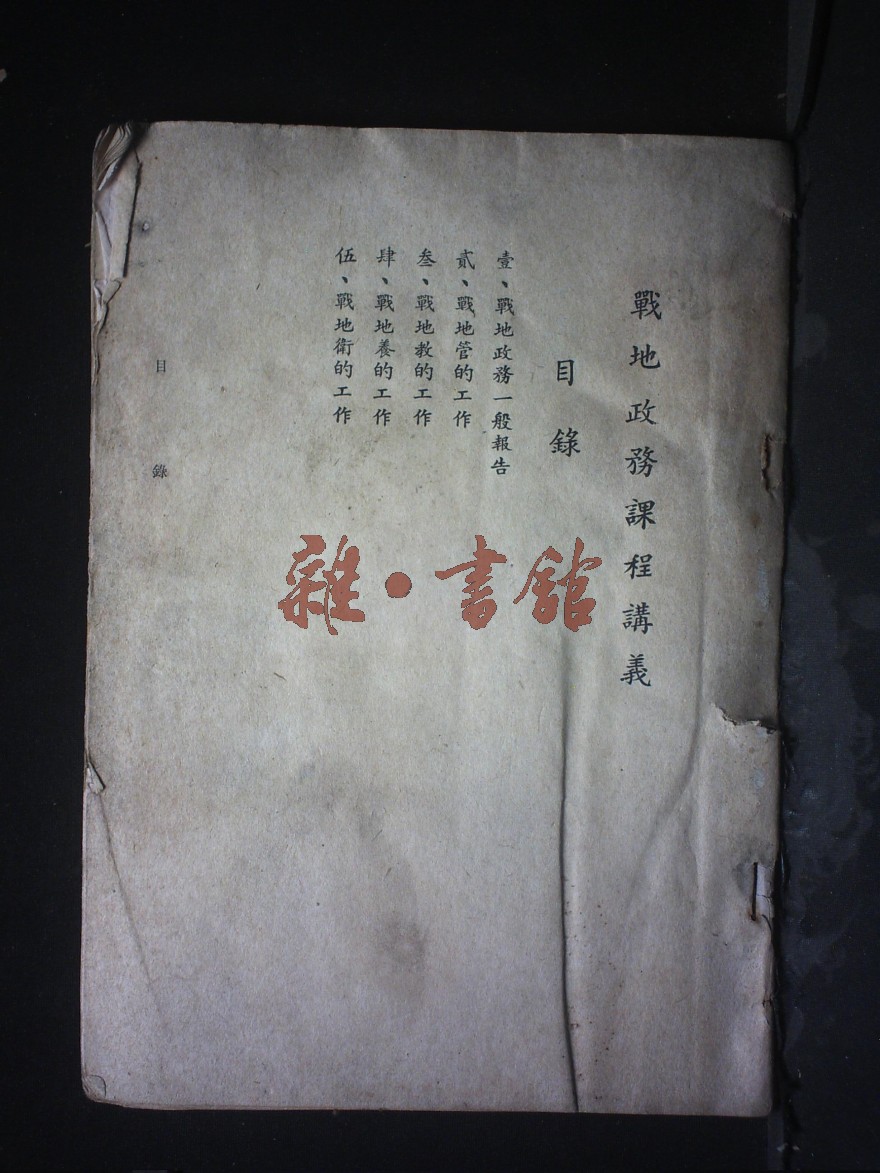 戰地政務課程講義
目錄
壹、戰地政務一般報告
貳、戰地管的工作
叁、戰地教的工作
肆、戰地養的工作
伍、戰地衛的工作
目錄
雜·書館